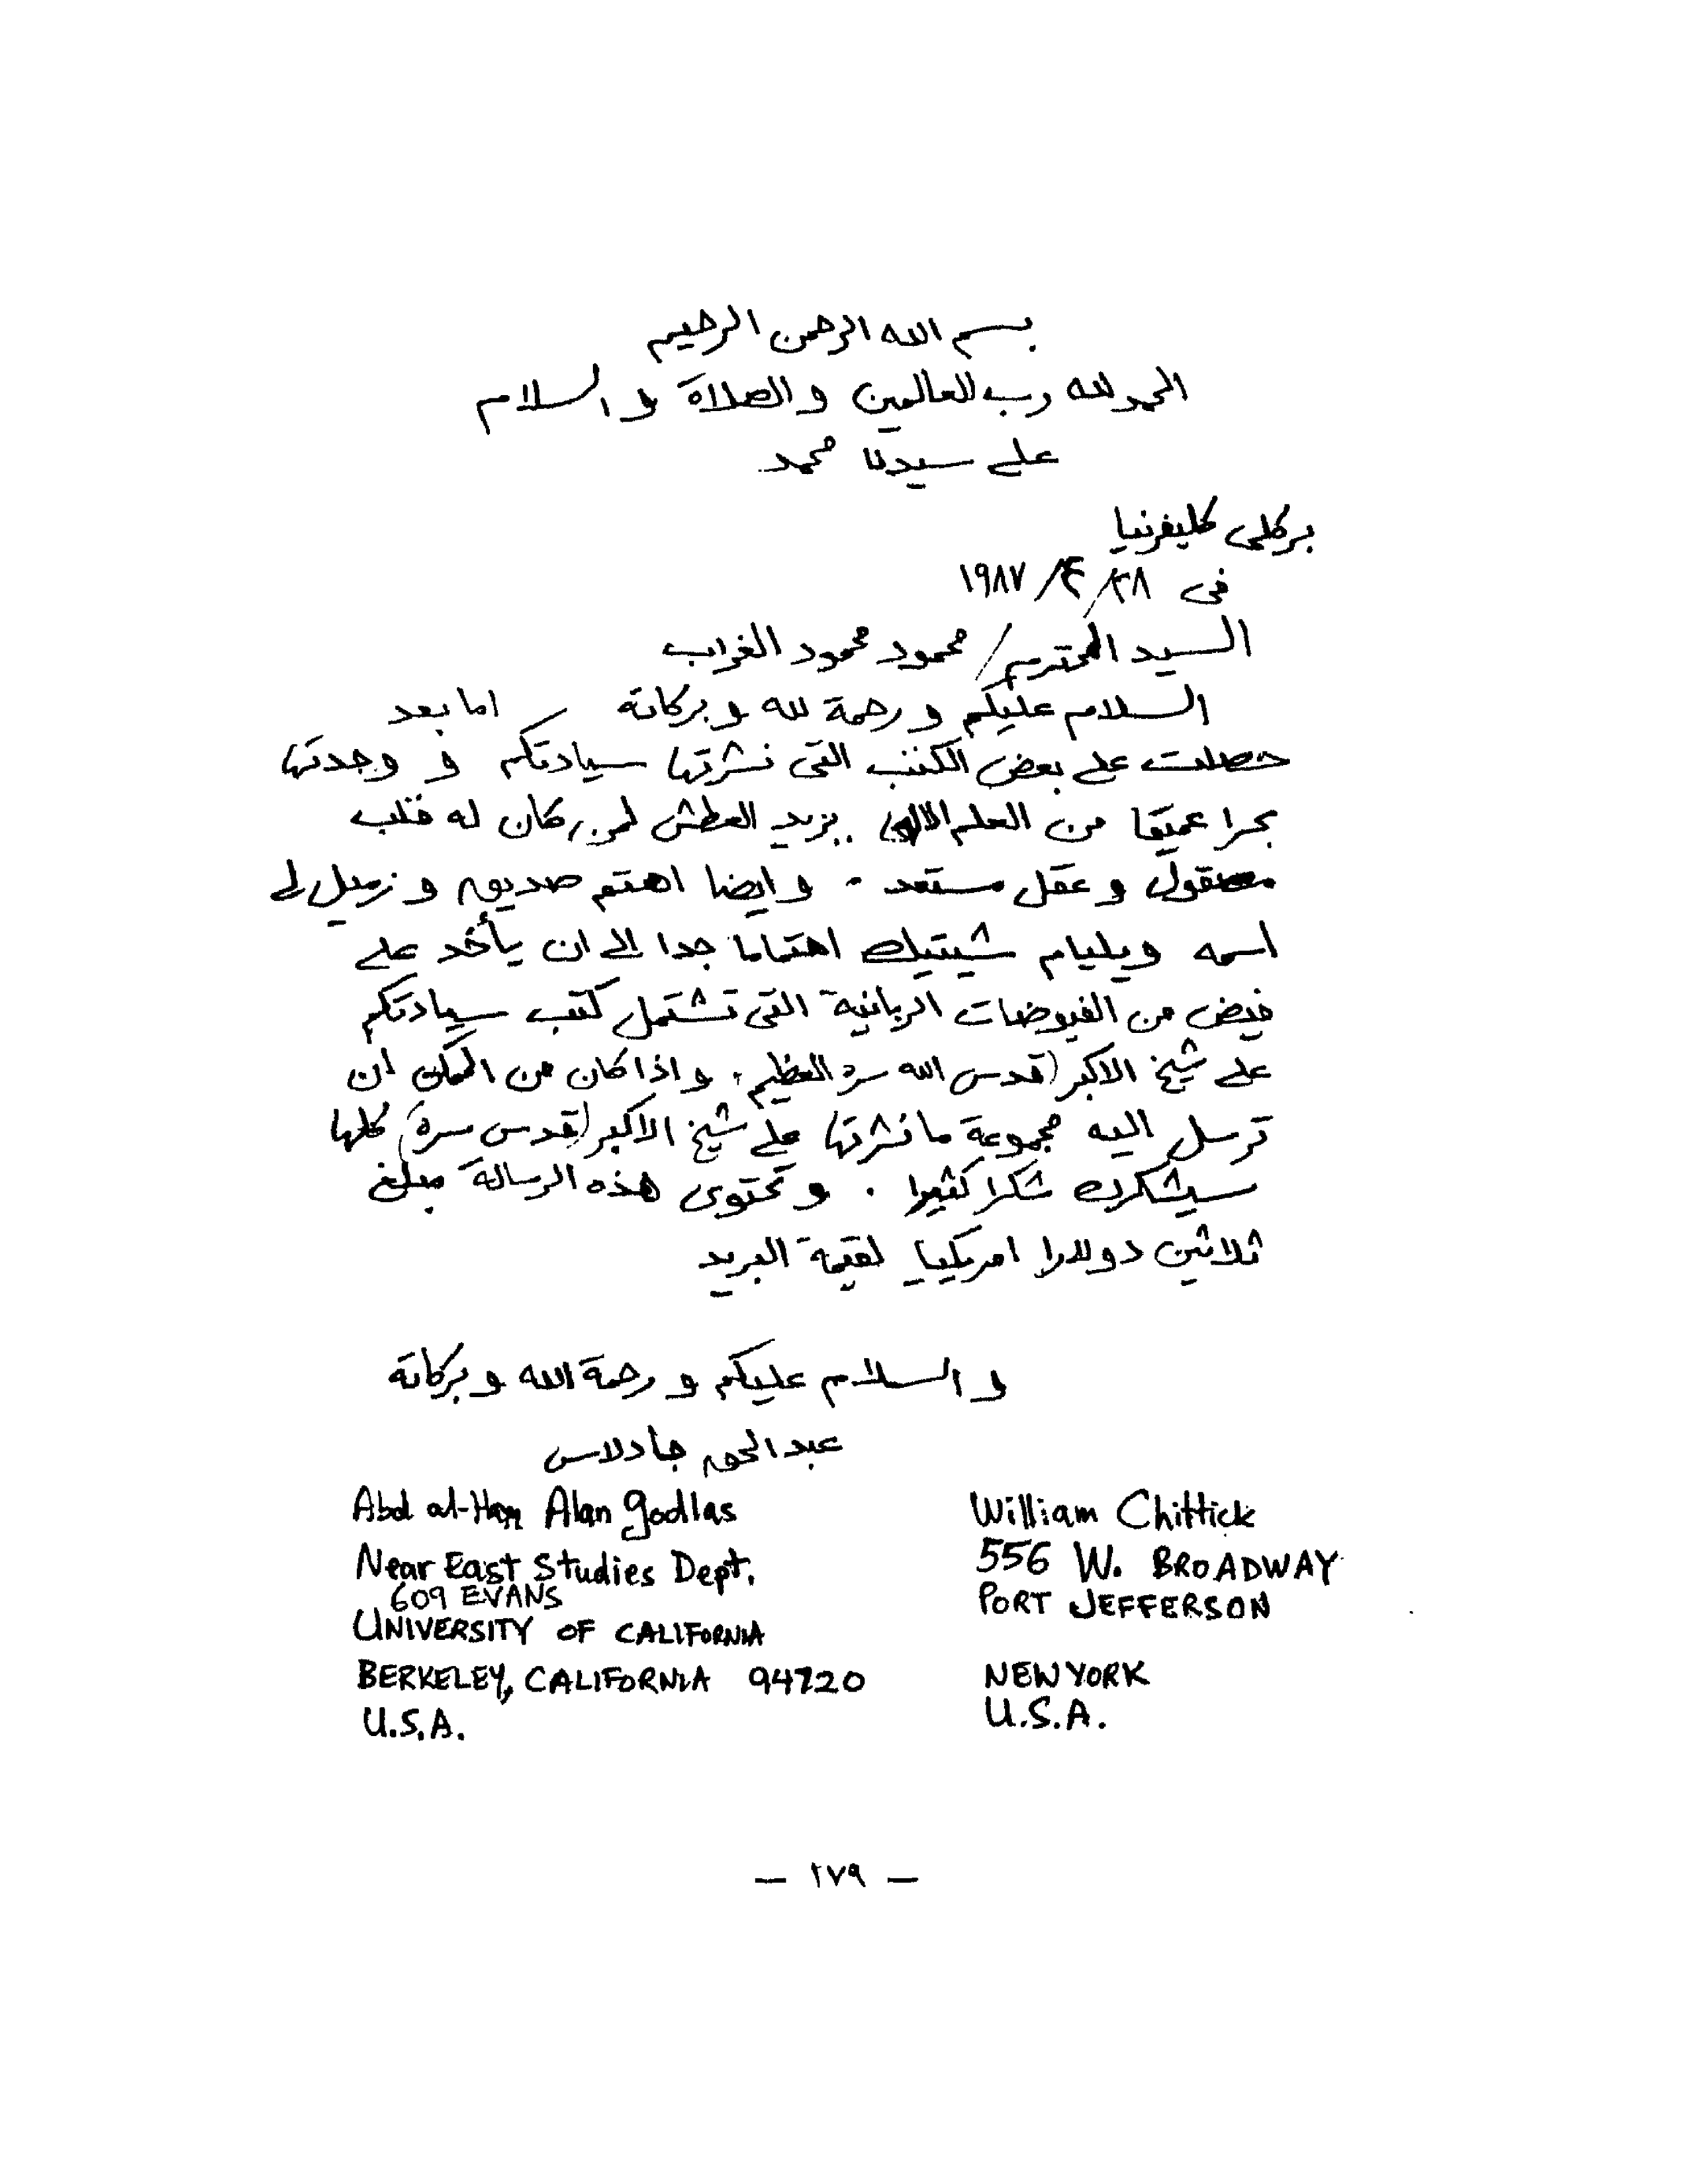 بسم الله الرحمن الرحيم
الحمد لله رب العالمين و الصلاة و السلام
على سيدنا محمد
بركلى كليفرنيا
فى ٢٨/٤/١٩٨٧
السيد المحترم / محمود محمود الغراب
السلام عليكم و رحمة لله و بركاتة اما بعد
حصلت على بعض الكتب التى نشرتها سيادتكم و وجدتها
بحرا عميقا من العلم الالهى يزيد العطش لمن كان له قلب
مصقول و عقل مستعد . و ايضا اهتم صديق و زميل لى
اسمه ويليام شيتيك اهتماما جدا الى ان يأخذ على
فيض من الفيوضات الربانية التى تشتمل كتب سيادتكم
على شيخ الاكبر (قدس الله سره العظيم . و اذا كان من الممكن ان
ترسل اليه مجموعة ما نشرتها على شيخ الاكبر (قدس سرة) كلها
سيشكرك شكرا كثيرا . و تحتوى هذه الرسالة مبلغ
ثلاثين دولارا امريكيا لقيمة البريد
و السلام عليكم و رحمة الله و بركاتة
عبد الحق جادلاس
Abd al-Haqq Alan Godlas
Near East Studies Dept.
609 EVANS
UNIVERSITY OF CALIFORNIA
BERKELEY, CALIFORNIA 94720
U.S.A.
William Chittick
556 W. BROADWAY
PORT JEFFERSON
NEW YORK
U.S.A.
— ٢٧٩ —